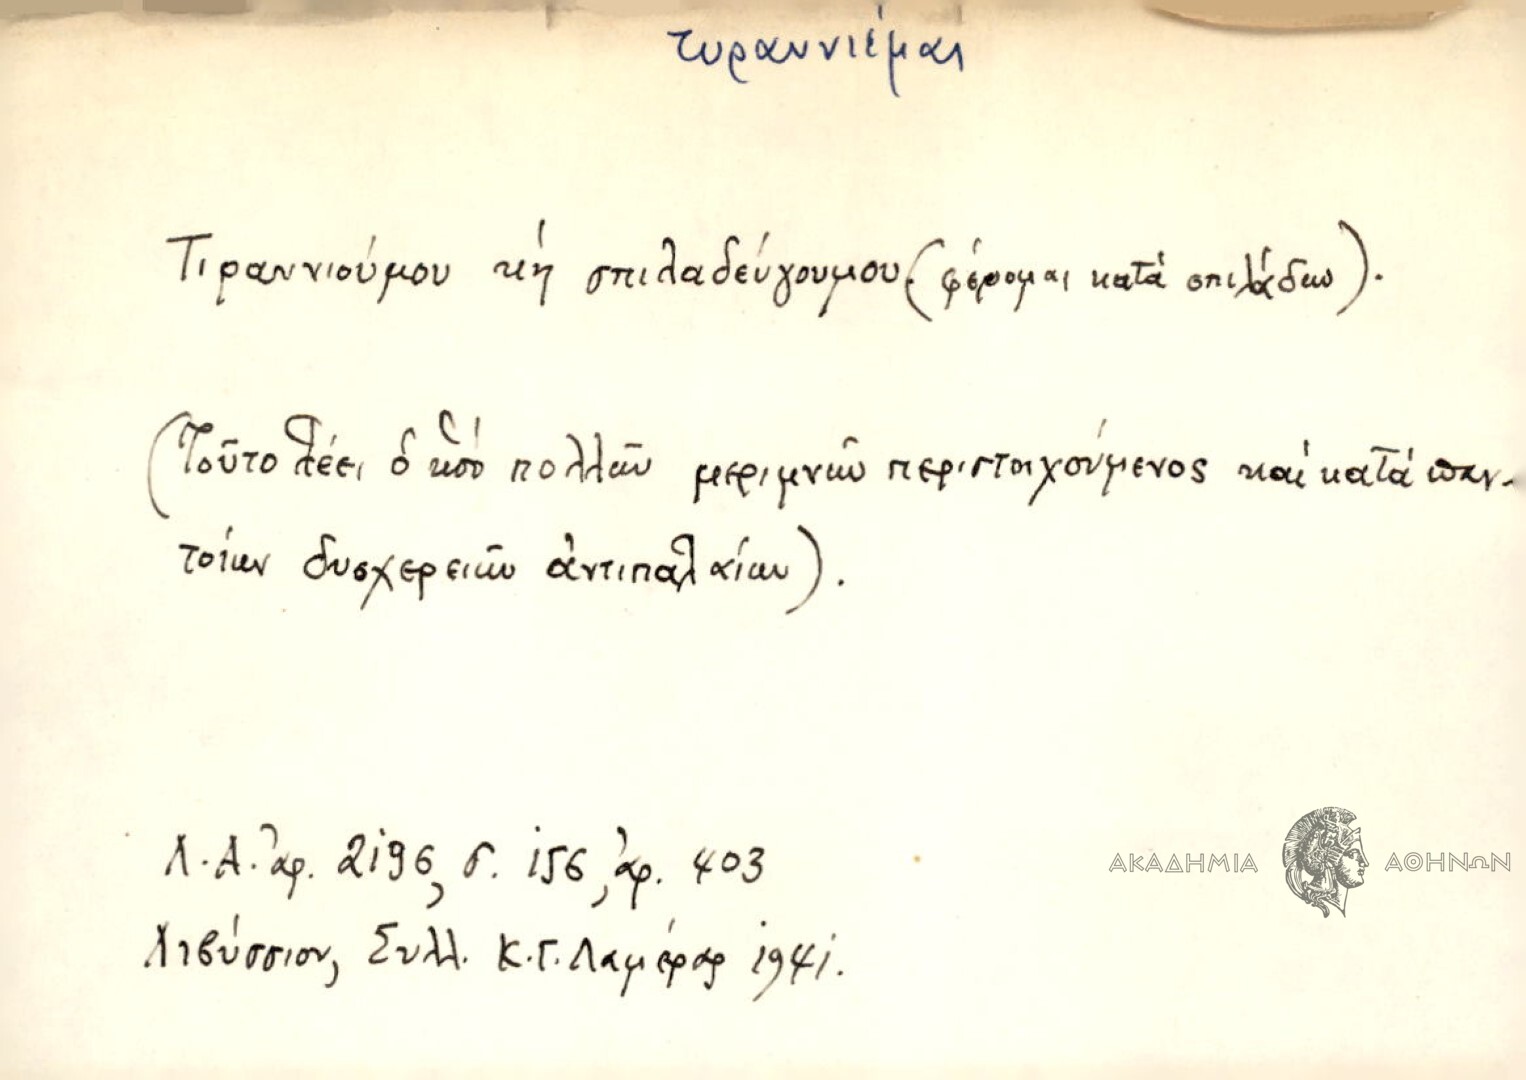 τυραννιέμαι
Τιραννιούμου κὴ σπιλαδεύγουμου (φέρομαι κατὰ σπιλάδων).
(Τοῦτο λέει ὁ ὑπὸ πολλῶν μεριμνῶν περιστοιχούμενος καὶ κατὰ παν-
τοίων δυσχερειῶν ἀντιπαλαίων).
Λ.Α. ἀρ. 2196, σ. 156, ἀρ. 403
Λιβύσσιον, Συλλ. Κ.Γ. Λαμέρας 1941.
ΑΚΑΔΗΜΙΑ ΑΘΗΝΩΝ